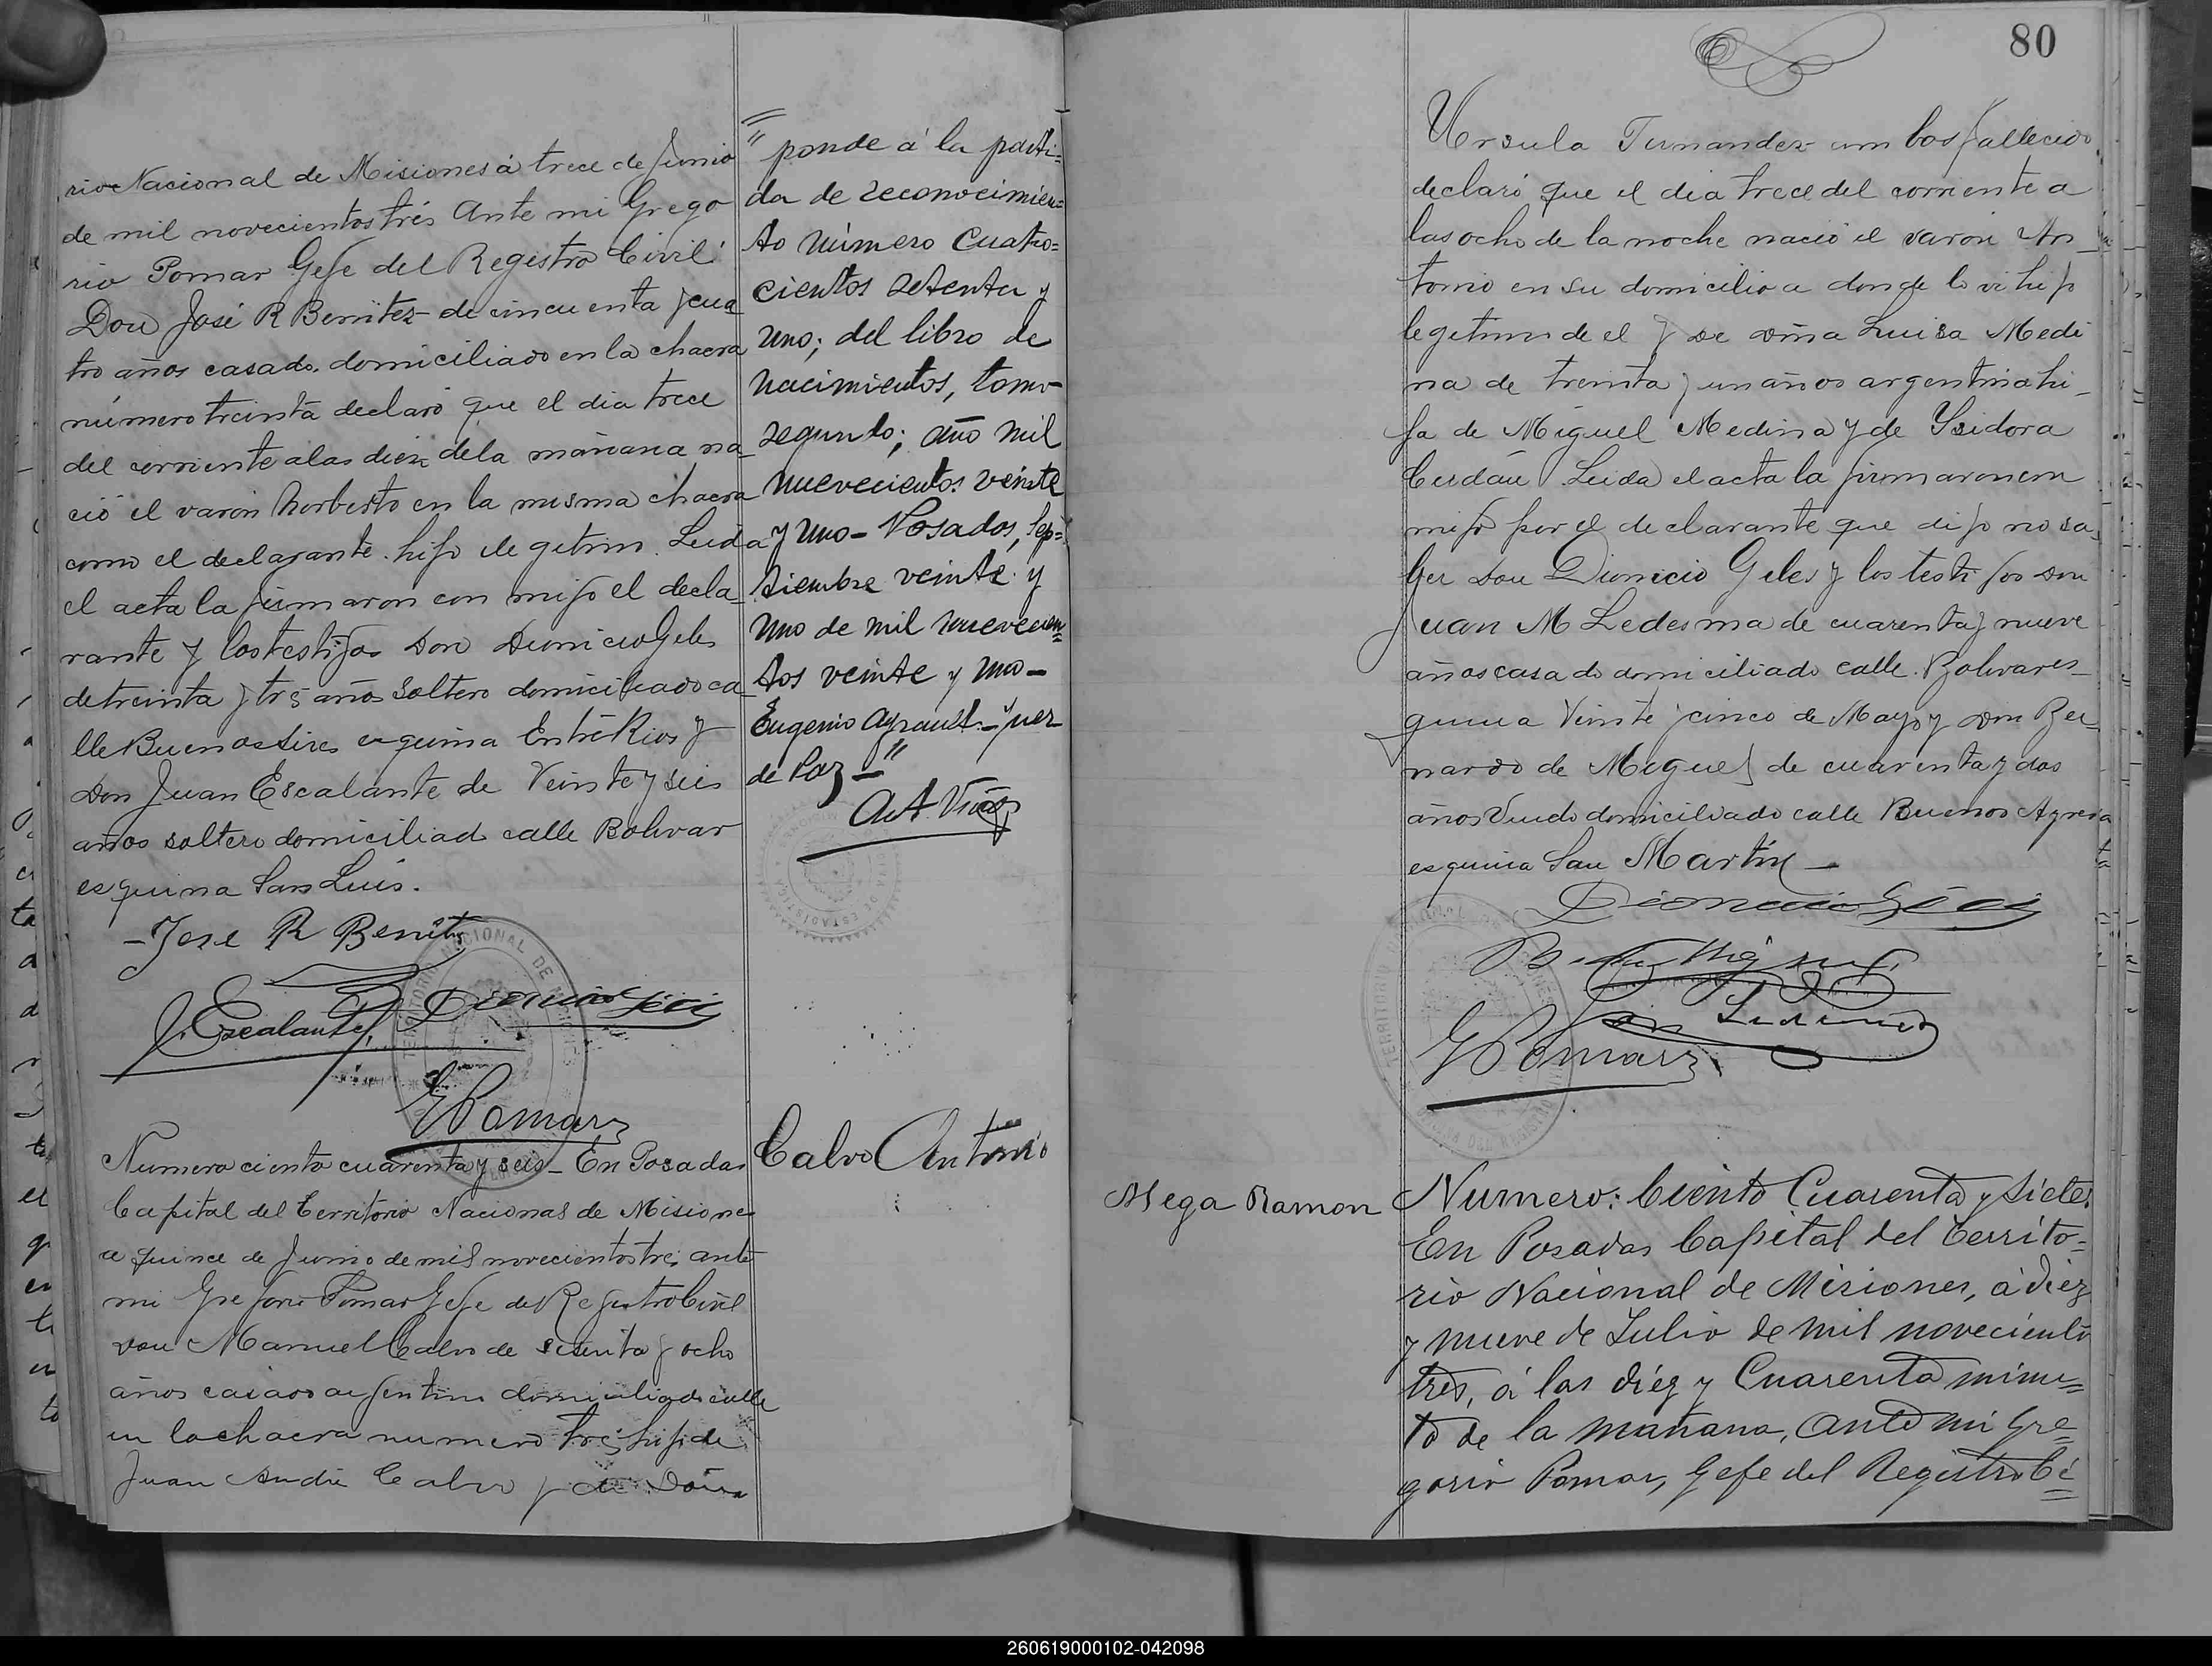 rio Nacional de Misiones á trece de Junio
de mil novecientos trés Ante mi Grego
rio Pomar Gefe del Registro Civil
Don José R Benitez de cincuenta y cua
tro años casado domiciliado en la chacra
número treinta declaró que el dia trece
del corriente a las diez de la mañana na
ció el varon Norberto en la misma chacra
como el declarante hijo ilegetimo. Leida
el acta la firmaron con migo el decla
rante y los testigos Don Dionicio Geles
de treinta y tres años soltero domiciliado ca
lle Buenos Aires esquina Entre Rios y
Don Juan Escalante de Veinte y seis
años soltero domiciliad calle Bolivar
esquina San Luis.
Jose R Benitez
J. Escalante
G Pomar
"ponde á la parti=
da de reconocimien=
to número cuatro=
cientos setenta y
uno; del libro de
nacimientos, tomo
segundo; año mil
nuevecientos veinte
y uno - Posadas, Sep=
tiembre veinte y
uno de mil nuevecien=
tos veinte y uno -
Eugenio Juez
de Paz - "
Numero ciento cuarenta y seis - En Posadas
Capital del Territorio Nacional de Misiones
a quince de Junio de mil novecientos tres ante
mi Gregorio Pomar Gefe del Registro Civil
don Manuel Calvo de sesenta y ocho
años casado argentino domiciliado calle
en la chacra numero tres hijo de
Juan Andre Calvo y de Doña
Calvo Antonio
80
Ursula Fernandez ambos fallecido
declaró que el dia trece del corriente a
las ocho de la noche nació el varon An
tonio en su domicilio a donde lo vi hijo
legetimo de el y de doña Luisa Medi
na de treinta y un años argentina hi
ja de Miguel Medina y de Ysidora
Cerdán Leida el acta la firmaron con
migo por el declarante que dijo no sa
ber Don Dionicio Geles y los testigos don
Juan M Ledesma de cuarenta y nueve
años casado domiciliado calle Bolivar es
quina Veinte y cinco de Mayo y Don Ber
nardo de Miguel de cuarenta y dos
años Viudo domiciliado calle Buenos Ayres
esquina San Martin
G Pomar
Mega Ramon
Numero: Ciento Cuarenta y Siete.
En Posadas Capital del Territo=
rio Nacional de Misiones, á diez
y nueve de Julio de mil noveciento
tres, á las diez y Cuarenta minu=
to de la mañana, Ante mi Gre=
gorio Pomar, Gefe del Registro Ci=
260619000102-042098